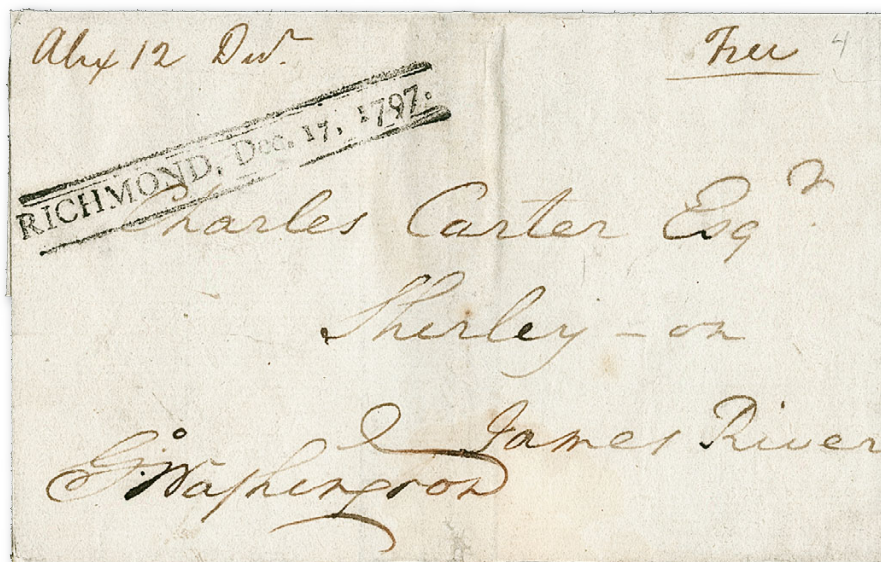 Alex 12 Decr.
Free 4
RICHMOND, Dec. 17, 1797.
Charles Carter Esqr.
Shirley – on
James River
Go: Washington